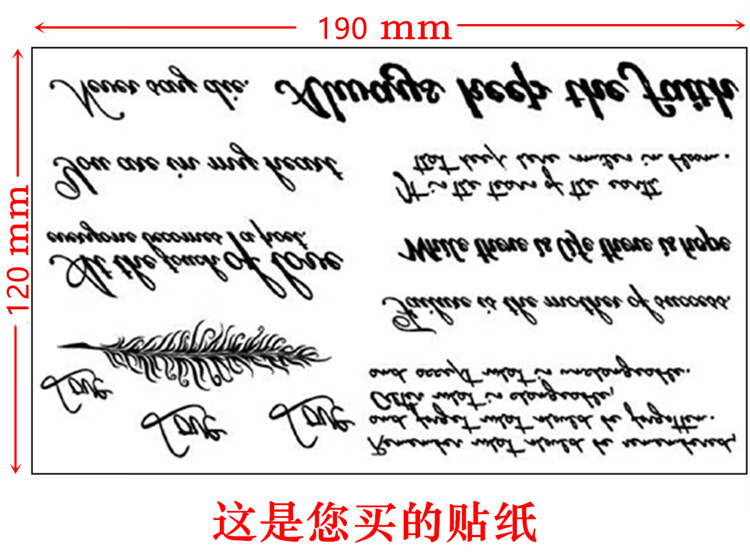 190 mm
120 mm
Never say die.
Always keep the faith
You are in my heart
It is the tears of the earth
that keep here smiles in bloom.
At the touch of love
everyone becomes a poet.
While there is life there is hope
Failure is the mother of success.
Love
Love
Love
Remember what should be remembered,
and forget what should be forgotten.
Alter what is changeable,
and accept what is unchangeable.
这是您买的贴纸